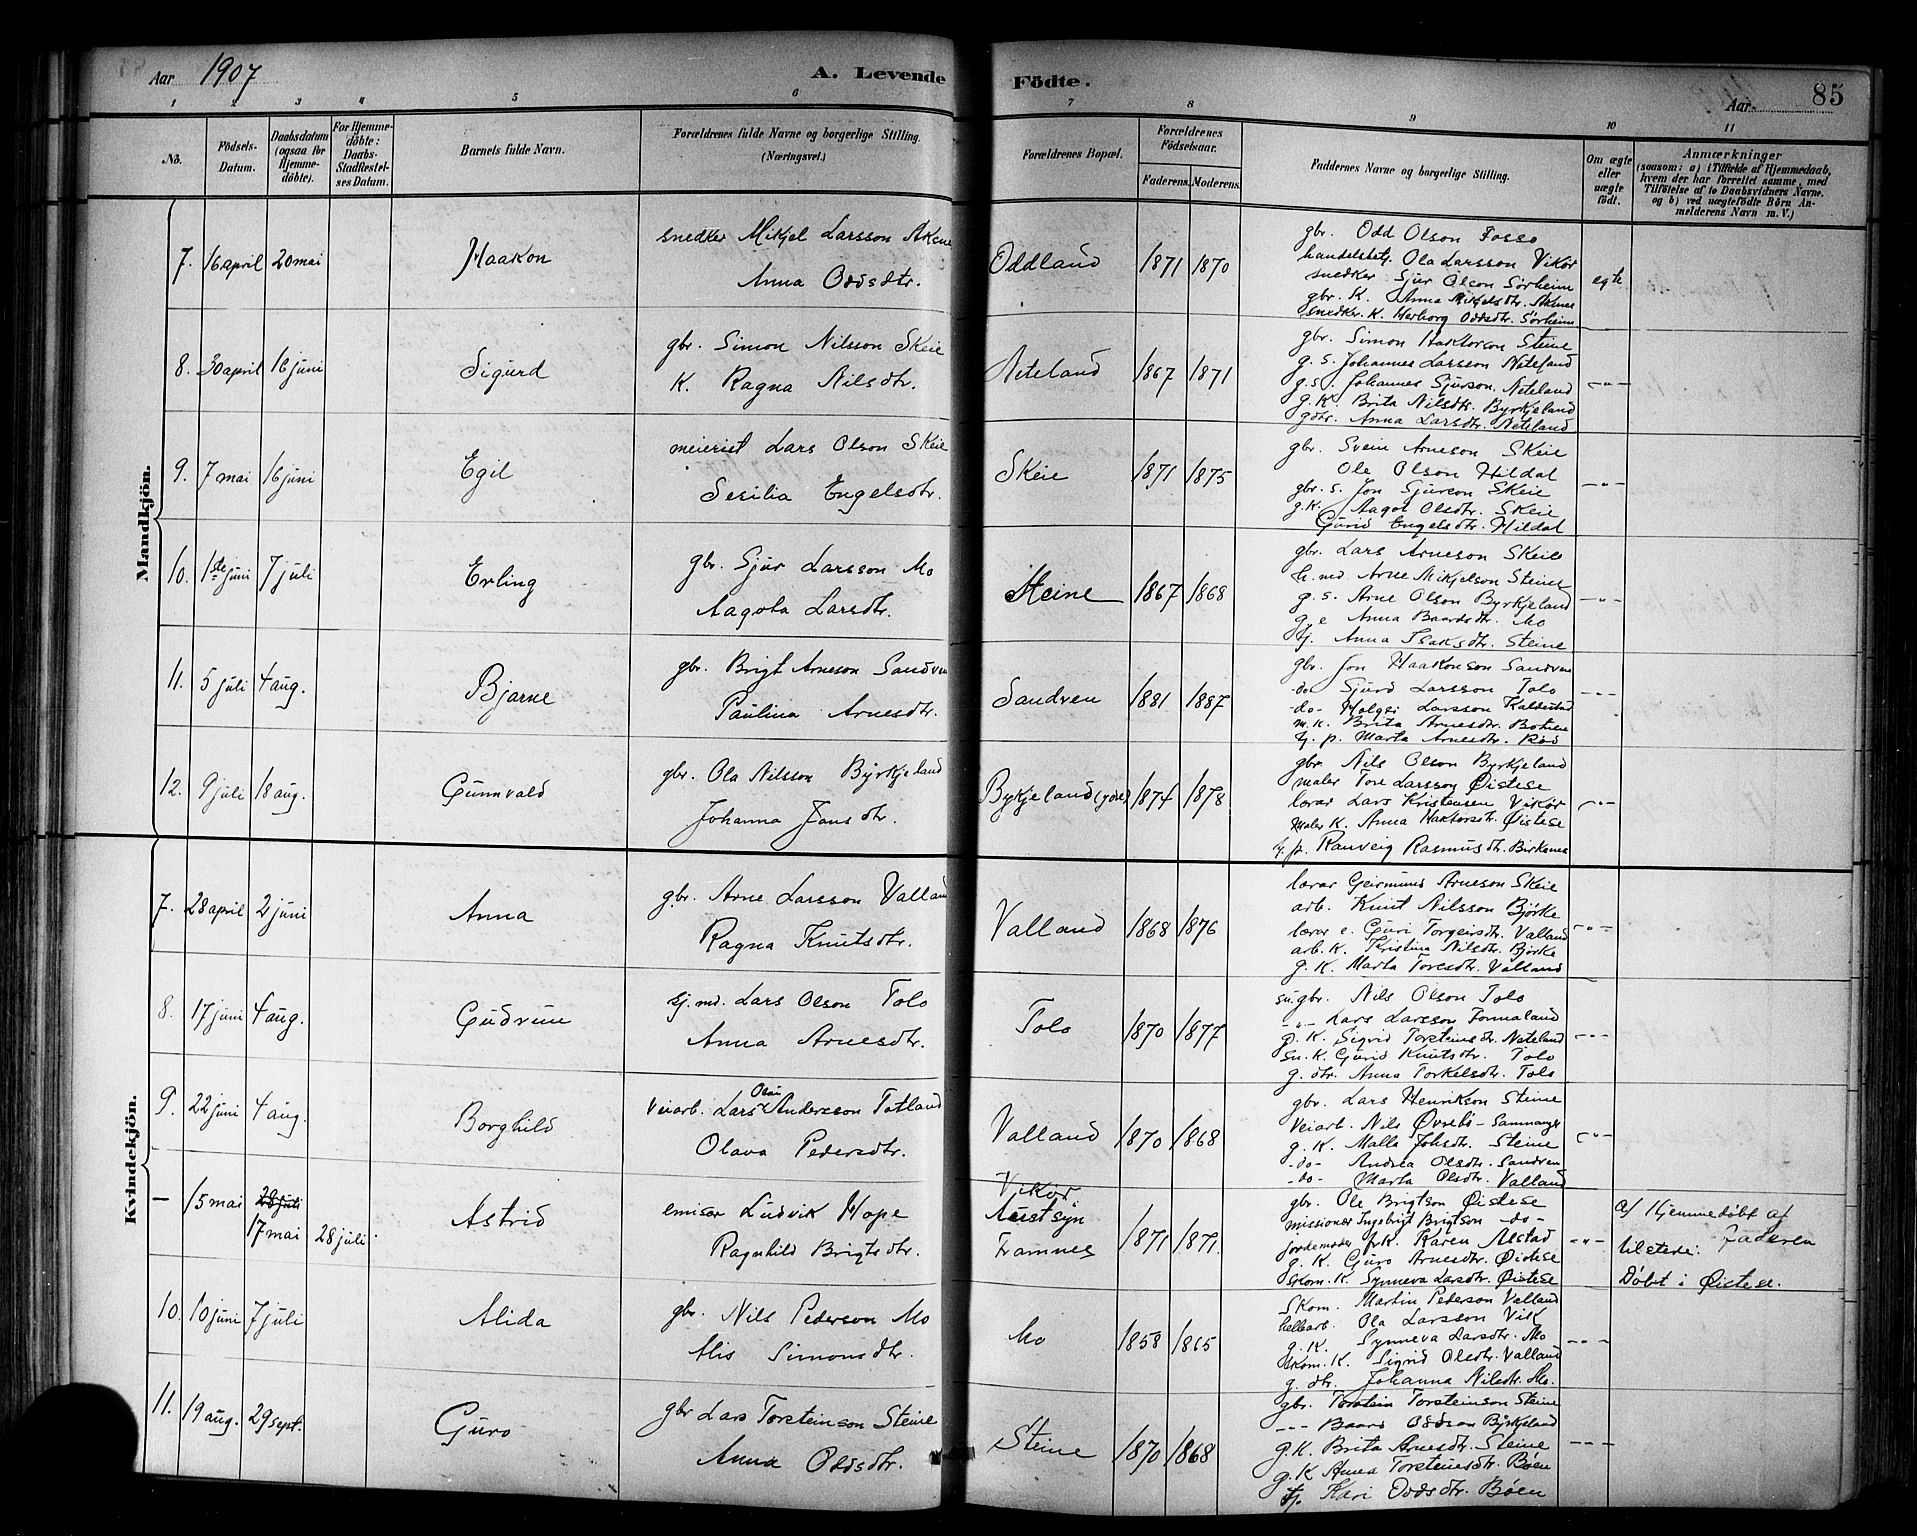 Aar 1907
A. Levende Födte.
Aar
85
1 2 3 4 5 6 7 8 9 10 11
No.
Födsels-Datum.
Daabsdatum (ogsaa for Hjemme-döbte).
For Hjemme-döbte: Daabs-Stadfæstel-ses Datum.
Barnets fulde Navn.
Forældrenes fulde Navne og borgerlige Stilling. (Næringsvei.)
Forældrenes Bopæl.
Forældrenes Födselsaar.
Faderens. Moderens.
Faddernes Navne og borgerlige Stilling.
Om ægte eller uægte født.
Anmærkninger
(saasom: a) i Tilfælde af Hjemmedaab, hvem der har forrettet samme, med Tilføielse af to Daabsvidners Navne. og b) ved uægtefödte Börn An-melderens Navn m. V.)
Mandkjön.
7. 16 april 20 mai Haakon
snedker Mikjel Larsson Aksnes
Anna Oddsdtr.
Oddland 1871 1870
gbr. Odd Olson Fosso
handelsbetj. Ola Larsson Vikør
snedker Sjur Olson Sörheim
gbr. K. Anna Mikjelsdtr. Aksnes
snedker. K. Herborg Oddsdtr. Sørheim
egte
8. 30 april 16 juni Sigurd
gbr. Simon Nilsson Skeie
K. Ragna Nilsdtr.
Neteland 1867 1871
gbr. Simon Haktorson Steine
g. s. Johannes Larsson Neteland
g. s. Johannes Sjurson. Neteland
g. K. Brita Nilsdtr. Byrkjeland
gdtr. Anna Larsdtr. Neteland
-"-
9. 7 mai 16 juni Egil
meierist Lars Olson Skeie
Sesilia Engelsdtr.
Skeie 1871 1875
gbr. Svein Arneson Skeie
Ole Olson Hildal
gbr. s. Jon Sjurson Skeie
g. K. Aagot Olsdtr. Skeie
Gurid Engelsdtr. Hildal
-"-
10. 1ste juni 7 juli Erling
gbr. Sjur Larsson Mo
Aagota Larsdtr.
Steine 1867 1868
gbr. Lars Arneson Skeie
h. md. Arne Mikjelson Steine
g. s. Arne Olson Byrkjeland
g. e Anna Baardsdtr. Mo
tj. Anna Isaksdtr. Steine
-"-
11. 5 juli 4 aug. Bjarne
gbr. Brigt Arneson Sandven
Paulina Arnesdtr.
Sandven 1881 1887
gbr. Jon Haakonson Sandven
-do- Sjurd Larsson Tolo
-do- Holger Larsson Kaldestad
m. K. Brita Arnesdtr. Botnen
tj. p. Marta Arnesdtr. Röd
-"-
12. 9 juli 18 aug. Gunnvald
gbr. Ola Nilsson Byrkjeland
Johanna Jonsdtr.
Bykjeland (ydre) 1874 1878
gbr. Nils Olson Byrkjeland
maler Tore Larsson Øistese
lærar Lars Kristensen Vikør
Maler K. Anna Haktorsdtr. Øistese
tj. p. Ranveig Rasmusdtr. Birkenes
-"-
Kvindekjön.
7. 28 april 2 juni Anna
gbr. Arne Larsson Valland
Ragna Knutsdtr.
Valland 1868 1876
lærar Geirmund Arneson Skeie
arb. Knut Nilsson Bjørke
lærar e. Guri Torgeirsdtr. Valland
arb. K. Kristina Nilsdtr. Bjørke
g. K. Marta Toresdtr. Valland
-"-
8. 17 juni 4 aug. Gudrun
sj. md. Lars Olson Tolo
Anna Arnesdtr.
Tolo 1870 1877
su. gbr. Nils Olson Tolo
-"- Lars Larsson Fonnaland
g. K. Sigrid Torsteinsdtr. Neteland
su. K. Gurid Knutsdtr. Tolo
g. dtr. Anna Torkelsdtr. Tolo
-"-
9. 22 juni 4 aug. Borghild
Veiarb. Lars Olai Anderson Tatland
Olava Pedersdtr.
Valland 1870 1868
gbr. Lars Henrikson Steine
Veiarb. Nils Øvrebø - Samnanger
g. K. Malla Johsdtr. Steine
-do- Andrea Olsdtr. Sandven
-do- Marta Olsdtr. Valland
-"-
- 15 mai 28 juli 17 mai 28 juli Astrid
emisær Ludvik Hope
Ragnhild Brigtsdtr.
Vikør
Framnes 1871 1871.
gbr. Ole Brigtson Øistese
missionær Ingebrigt Brigtson -do-
Jordemoder frk. Karen Alstad
g. K. Guro Arnesdtr. Øistese
skom. K. Synneva Larsdtr. Øistese
-"-
a/ Hjemmedøbt af Faderen
tilstede:
Døbt i Øistese.
10. 10 juni 7 juli Alida
gbr. Nils Pederson Mo
Alis Simonsdtr.
Mo 1858 1865
skom. Martin Pederson Valland
hellearb. Ola Larsson Vik
g. K. Synneva Larsdtr. Mo
skom. K. Sigrid Olsdtr. Valland
g. dtr. Johanna Nilsdtr. Mo.
-"-
11. 19 aug. 29 sept. Guro
gbr Lars Torsteinson Steine
Anna Oddsdtr.
Steine 1870 1868
gbr. Torstein Torsteinson Steine
-"- Baard Oddson Byrkjeland
g. K. Brita Arnesdtr. Steine
g. K Anna Torsteinsdtr. Bøen
tj. Kari Oddsdtr. Bøen
-"-